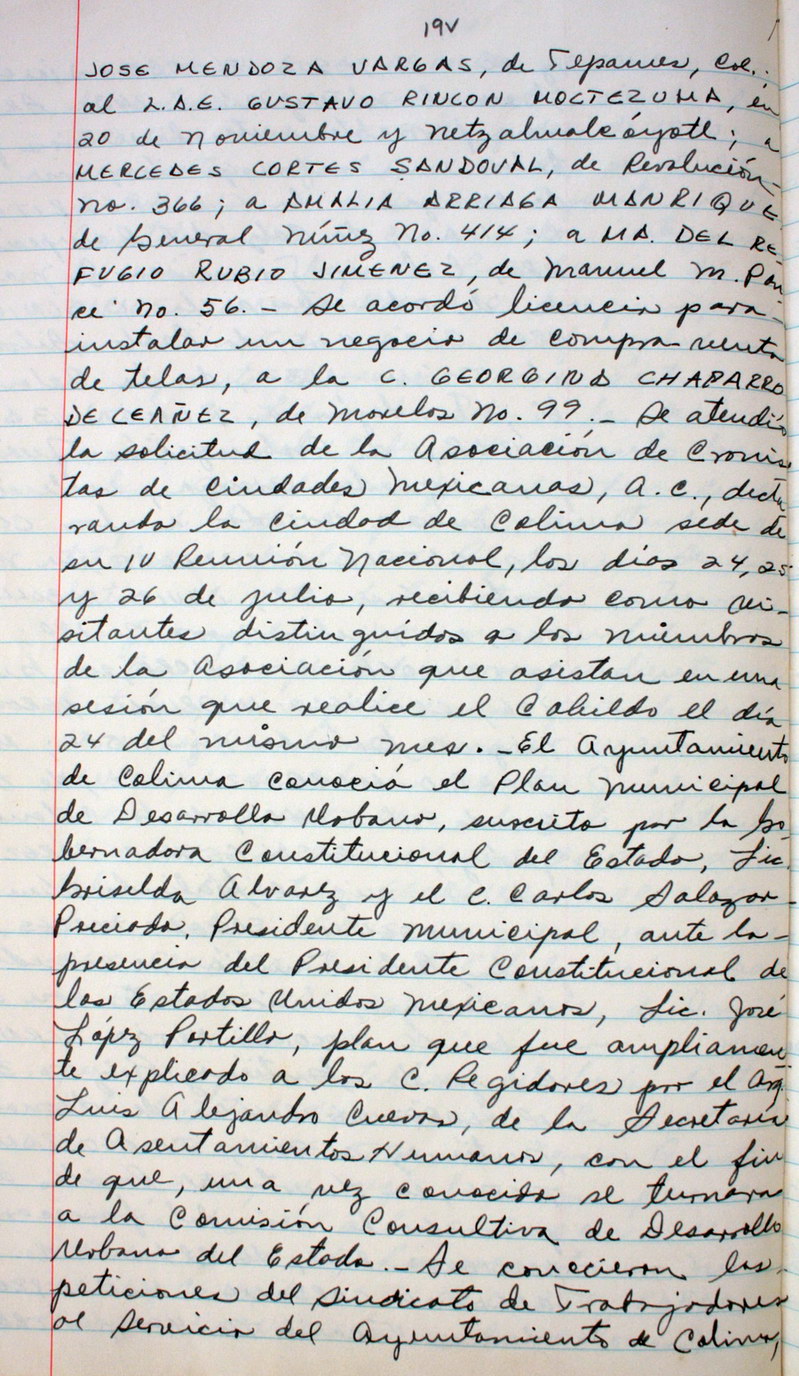 19V
JOSE MENDOZA VARGAS, de Tepames, Col.;
al L.A.E. GUSTAVO RINCON MOCTEZUMA, en
20 de Noviembre y Netzalmalcóyotl; a
MERCEDES CORTES SANDOVAL, de Revolución
No. 366; a AMALIA ARRIAGA MANRIQUE
de General Núñez No. 414; a MA. DEL RE-
FUGIO RUBIO JIMENEZ, de Manuel M. Pon
ce No. 56.- Se acordó licencia para-
instalar un negocio de compra venta
de telas, a la C. GEORGINA CHAPARRO
DE LEAÑEZ, de Morelos No. 99.- Se atendió
la solicitud de la Asociación de Cronis
tas de Ciudades Mexicanas, A.C., decla
rando la Ciudad de Colima sede de
su IV Reunión Nacional, los días 24, 25
y 26 de julio, recibiendo como vi-
sitantes distinguidos a los miembros
de la Asociación que asistan en una
sesión que realice el Cabildo el día
24 del mismo mes.-El Ayuntamiento
de Colima conoció el Plan Municipal
de Desarrollo Urbano, suscrito por la Go
bernadora Constitucional del Estado, Lic.
Griselda Alvarez y el C. Carlos Salazar-
Preciado, Presidente Municipal, ante la-
presencia del Presidente Constitucional de
los Estados Unidos Mexicanos, Lic. José
López Portillo, plan que fue ampliamen
te explicado a los C. Regidores por el Arq.
Luis Alejandro Cuevas, de la Secretaría
de Asentamientos Humanos, con el fin
de que, una vez conocido se turnara
a la Comisión Consultiva de Desarrollo
Urbano del Estado.- Se conocieron las-
peticiones del Sindicato de Trabajadores
al Servicio del Ayuntamiento de Colima,